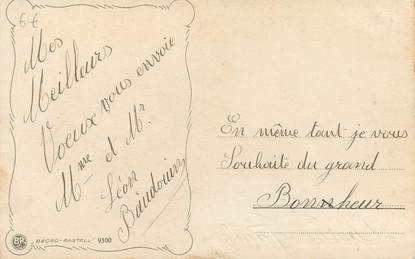 6€
Mes
Meillairs
Voeux vous envoie
Mme et Mr
Léon
Baudouin
En même tant je vous
Souhaite du grand
Bonnheur
BR
„BEDRO-PASTELL" 9300